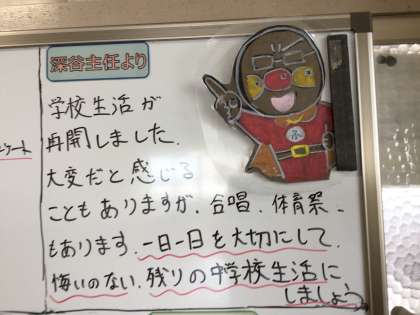 深谷主任より
学校生活が
再開しました。
大変だと感じる
こともありますが、合唱、体育祭、
もあります。一日一日を大切にして、
悔いのない、残りの中学校生活に
しましょう